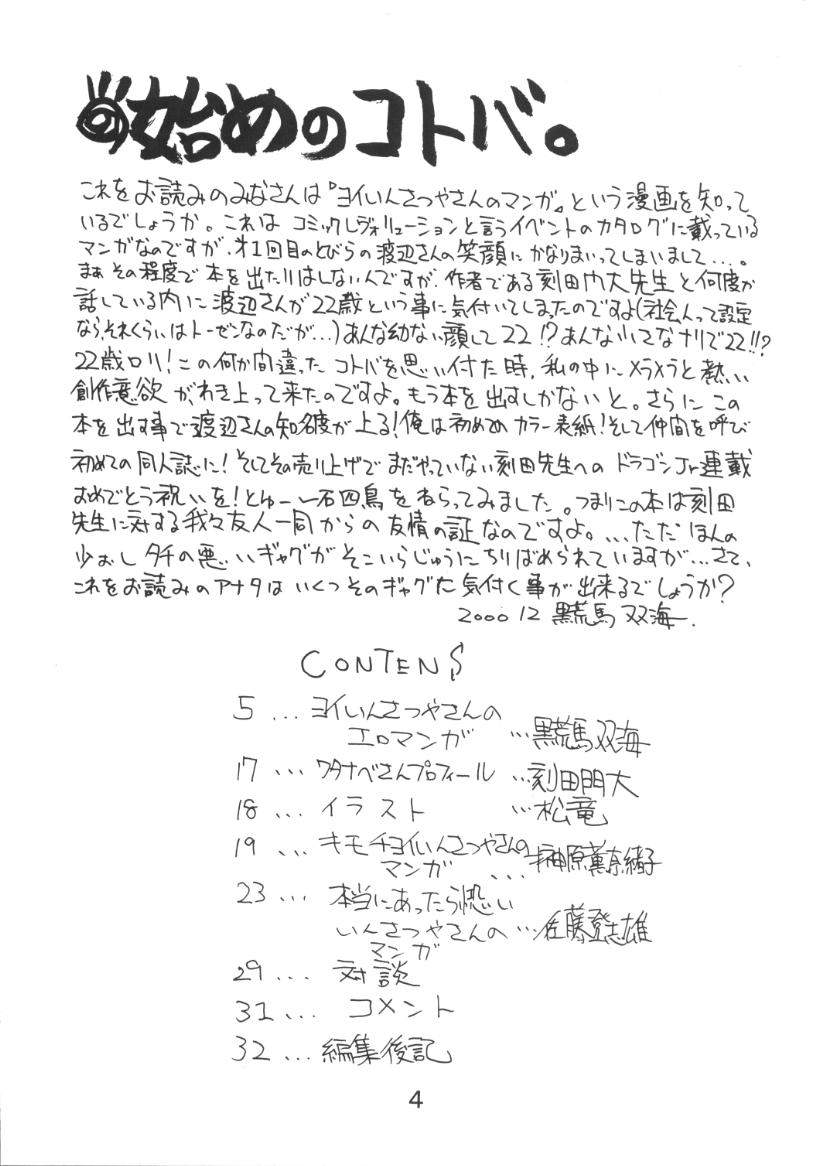 始めのコトバ。
これをお読みのみなさんは『ヨイいんさつやさんのマンガ』という漫画を知って
いるでしょうか。これは コミックレヴォリューションと言うイベントのカタログに載っている
マンガなのですが、才1回目のとびらの渡辺さんの笑顔にかなりまいってしまいまして…。
まぁその程度で本を出したりはしないんですが、作者である刻田門大先生と何度か
話している内に渡辺さんが22歳という事に気付いてしまったのですよ(社会人って設定
なら、それくらいはトーゼンなのだが…)あんな幼ない顔して22!?あんな小さなナリで22!!?
22歳ロリ!この何か間違ったコトバを思い付た時、私の中にメラメラと熱い
創作意欲がわき上って来たのですよ。もう本を出すしかないと。さらにこの
本を出す事で渡辺さんの知名度が上る!俺は初めてのカラー表紙!そして仲間を呼び
初めての同人誌に!そしてその売り上げでまだやっていない刻田先生へのドラゴンJr連載
おめでとう祝いを!とゆー一石四鳥をねらってみました。つまりこの本は刻田
先生に対する我々友人一同からの友情の証なのですよ。...ただほんの
少おしタチの悪いギャグがそこいらじゅうにちりばめられていますが…さて、
これをお読みのアナタはいくつそのギャグに気付く事が出来るでしょうか?
2000 12 黒荒馬双海.
CONTENS
5 ... ヨイいんさつやさんの
エロマンガ ...黒荒馬双海
17 ... ワタナベさんプロフィール ...刻田門大
18 ... イラスト ...松竜
19 ... キモチヨイいんさつやさんの
マンガ ...榊原薫奈緒子
23 ... 本当にあったら恐い
いんさつやさんの ...佐藤登志雄
マンガ
29 ... 対談
31 ... コメント
32 ... 編集後記
4